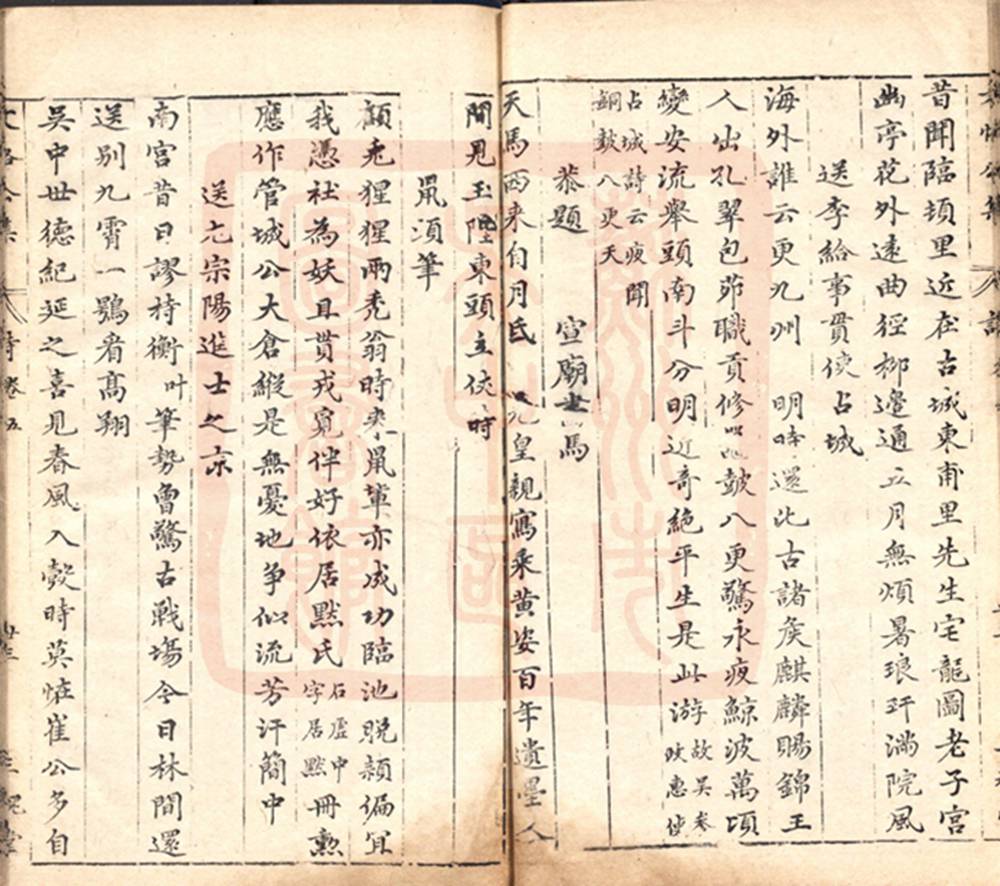 昔聞臨頓里近在古城東甫里先生宅龍圖老子宮
幽亭花外遠曲徑柳邊通五月無煩暑琅玕滿院風
送李給事貫使占城
海外誰云更九州 明時還比古諸侯麒麟賜錦王
人出孔翠包茆職貢修 鼓八更驚永夜鯨波萬頃
變安流舉頭南斗分明近奇絕平生是此游故吳參政惠使
占城詩云夜聞銅鼓八更天
恭題 宣廟 馬
天馬西來自月氐 皇親寫乘黃姿百年遺墨人
間見玉陛東頭立仗時
鼠須筆
顧兔猩猩兩禿翁時來鼠輩亦成功臨池脫穎偏宜
我憑社為妖且貰戎覓伴好依居默氏石虛中字居默冊勲
應作管城公大倉縱是無憂地爭似流芳汗簡中
送尤宗陽進士之京
南宮昔日謬持衡叶筆勢曾驚古戰場今日林間還
送別九霄一鶚看高翔
吳中世德紀延之喜見春風入彀時莫怪崔公多自